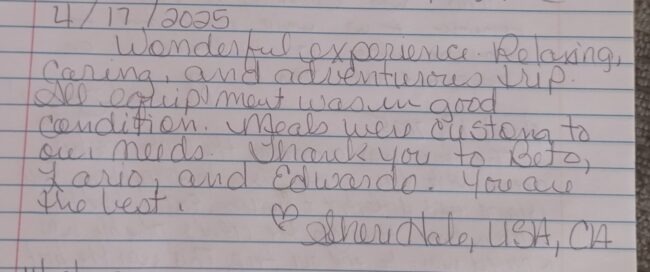 4/17/2025
Wonderful experience. Relaxing,
caring, and adventurous trip.
All equipment was in good
condition. Meals were custong to
our needs. Thank you to Beto,
and Edwardo. You are
the best.
♡ USA, CA